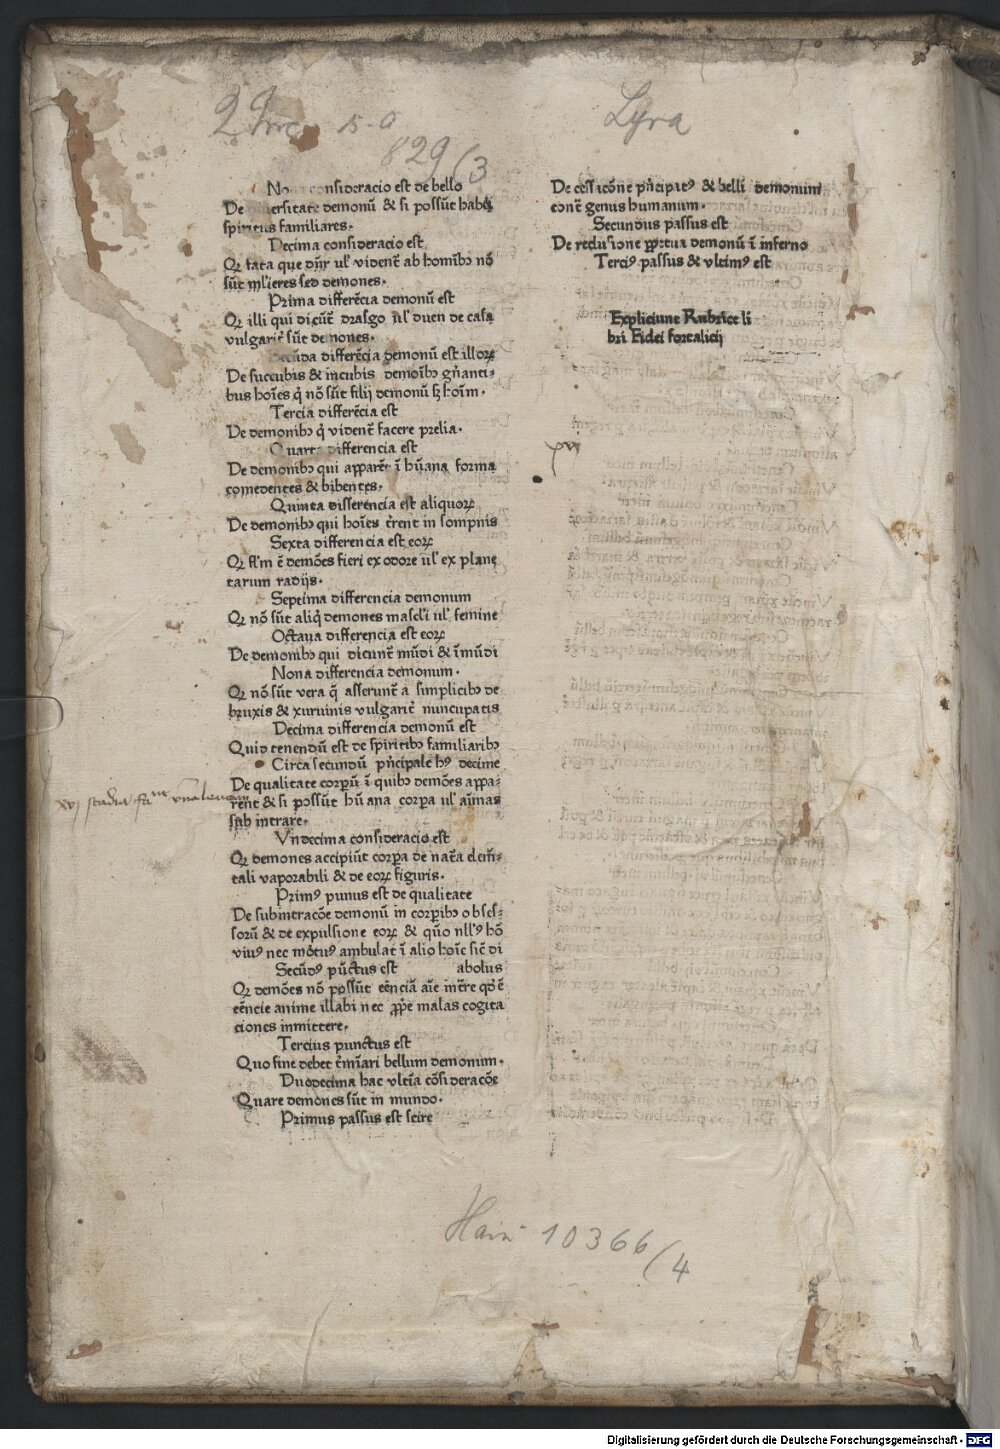 2 Inc. s. a.
829(3
Lyra
No consideracio est de bello
De ersitate demonū & si possūt habē
spiritus familiares.
Decima consideracio est
Qꝛ fata que dn̄r ul' vident̄ ab homībꝫ nō
sūt ml'ieres sed demones.
Prima differēcia demonū est
Qꝛ illi qui dicūt̄ drasgo ul' duen de casa
vulgarit̄ sūt demones.
Secūda differēcia demonū est illoꝝ
De succubis & incubis demoībꝫ gn̄anti-
bus hoīes q̇ nō sūt filij demonū sꝫ hoīm.
Tercia differēcia est
De demonibꝫ q̇ vident̄ facere prelia.
Quarta differencia est
De demonibꝫ qui apparēt ī hūana forma
comedentes & bibentes.
Quinta differencia est aliquoꝝ
De demonibꝫ qui hoīes t̄rent in sompnis
Sexta differencia est eoꝝ
Qꝛ fl'm ē demōes fieri ex odore ul' ex plane
tarum radijs.
Septima differencia demonum
Qꝛ nō sūt aliq̇ demones mascl'i ul' femine
Octaua differencia est eoꝝ
De demonibꝫ qui dicunt̄ mūdi & īmūdi
Nona differencia demonum.
Qꝛ nō sūt vera q̄ asserunt̄ a simplicibꝫ de
bruxis & xuruinis vulgarit̄ nuncupatis
Decima differencia demonū est
Quid tenendū est de spiritibꝫ familiaribꝫ
Circa secundū pn̄cipale hꝰ decime
De qualitate corpꝝū ī quibꝫ demōes appa-
rent & si possūt hūana corpa ul' aīmas
sub intrare.
xvj stadia
Vndecima consideracio est
Qꝛ demones accipiūt corpa de nat̄a elem̄-
tali vaporabili & de eoꝝ figuris.
Primꝰ punus est de qualitate
De subintracōe demonū in corpībꝫ obses-
sorū & de expulsione eoꝝ & qūo nll'ꝰ hō
viuꝰ nec mōtuꝰ ambulat ī alio hoīe sic̄ di
Secūdꝰ pūctus est abolus
Qꝛ demōes nō possūt eēnciā aīe int̄re qꝫ ē
eēncie anime illabi nec ꝓp̄e malas cogita
ciones inmittere.
Tercius punctus est
Quo fine debet t̄mīari bellum demonum.
Duodecima hac vltīa cōsideracōe
Quare demones sūt in mundo.
Primus passus est scire
De cessicōne pn̄cipatꝰ & belli demonum
cont̄ genus humanum.
Secundus passus est
De reclusione ꝑpetua demonū ī inferno
Terciꝰ passus & vltimꝰ est
Expliciunt Rubrice li
bri Fidei fortalicij
xvj
Hain 10366(4
Digitalisierung gefördert durch die Deutsche Forschungsgemeinschaft - DFG